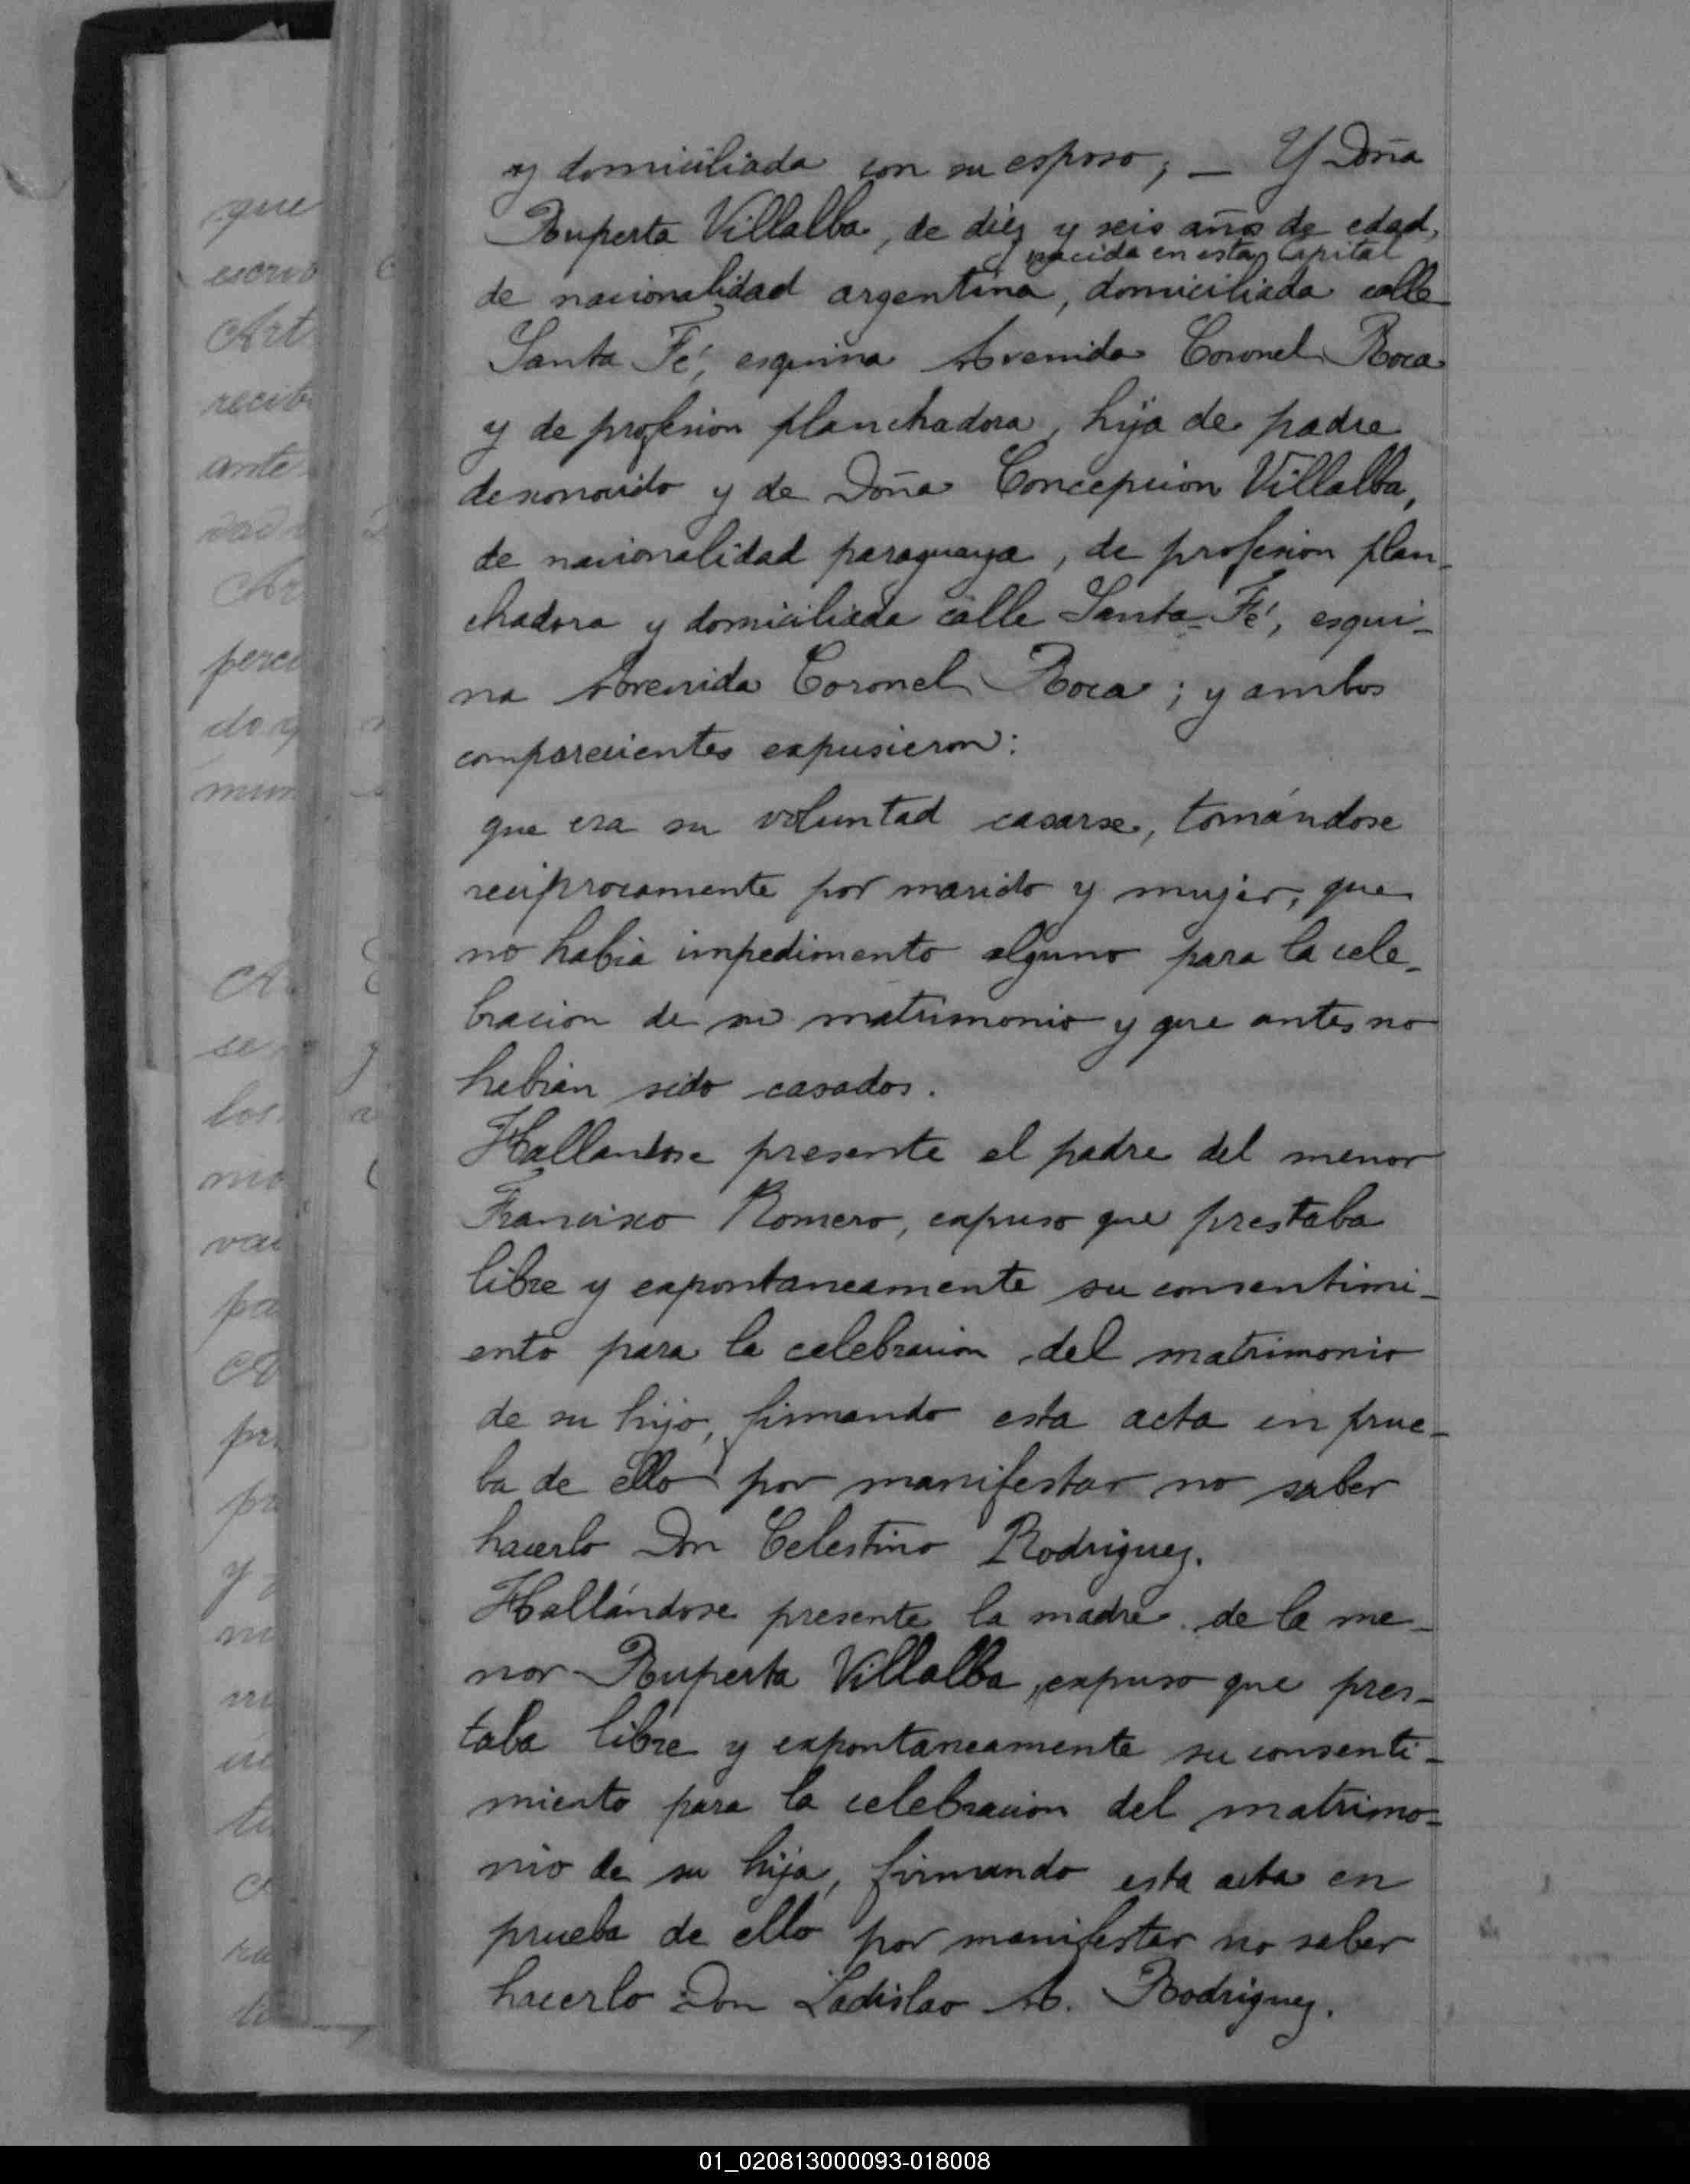 y domiciliada con su esposo; — Y Doña
Ruperta Villalba, de diez y seis años de edad,
nacida en esta Capital
de nacionalidad argentina, domiciliada calle
Santa Fé, esquina Avenida Coronel Roca
y de profesion planchadora, hija de padre
desconocido y de Doña Concepcion Villalba,
de nacionalidad paraguaya, de profesion plan-
chadora y domiciliada calle Santa-Fé, esqui-
na Avenida Coronel Roca; y ambos
comparecientes expusieron:
que era su voluntad casarse, tomándose
reciprocamente por marido y mujer, que
no habia impedimento alguno para la cele-
bracion de su matrimonio y que antes no
habian sido casados.
Hallandose presente el padre del menor
Francisco Romero, expuso que prestaba
libre y expontaneamente su consentimi-
ento para la celebracion del matrimonio
de su hijo, firmando esta acta en prue-
ba de ello por manifestar no saber
hacerlo Don Celestino Rodriguez.
Hallándose presente la madre de la me-
nor Ruperta Villalba, expuso que pres-
taba libre y expontaneamente su consenti-
miento para la celebracion del matrimo-
nio de su hija, firmando esta acta en
prueba de ello por manifestar no saber
hacerlo Don Ladislao A. Rodriguez.
que
Art
recib
ante
mun
se
los
pa
y
01_020813000093-018008